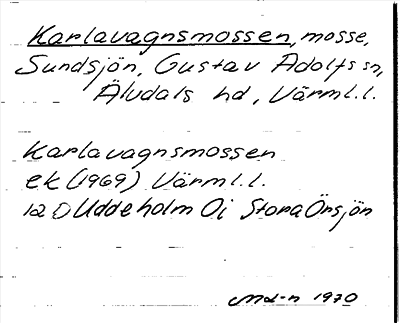 Karlavagnsmossen, mosse,
Sundsjön, Gustav Adolfs sn,
Älvdals hd, Värml.l.
Karlavagnsmossen
ek (1969) Värml.l.
12 D Uddeholm 0i Stora Örsjön
1970